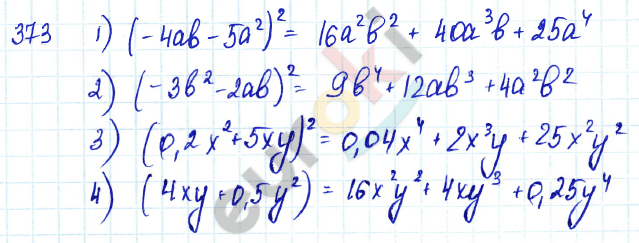 373 1) (-4ab - 5a²)² = 16a²b² + 40a³b + 25a⁴
2) (-3b² - 2ab)² = 9b⁴ + 12ab³ + 4a²b²
3) (0,2x² + 5xy)² = 0,04x⁴ + 2x³y + 25x²y²
4) (4xy + 0,5y²) = 16x²y² + 4xy³ + 0,25y⁴
euroki